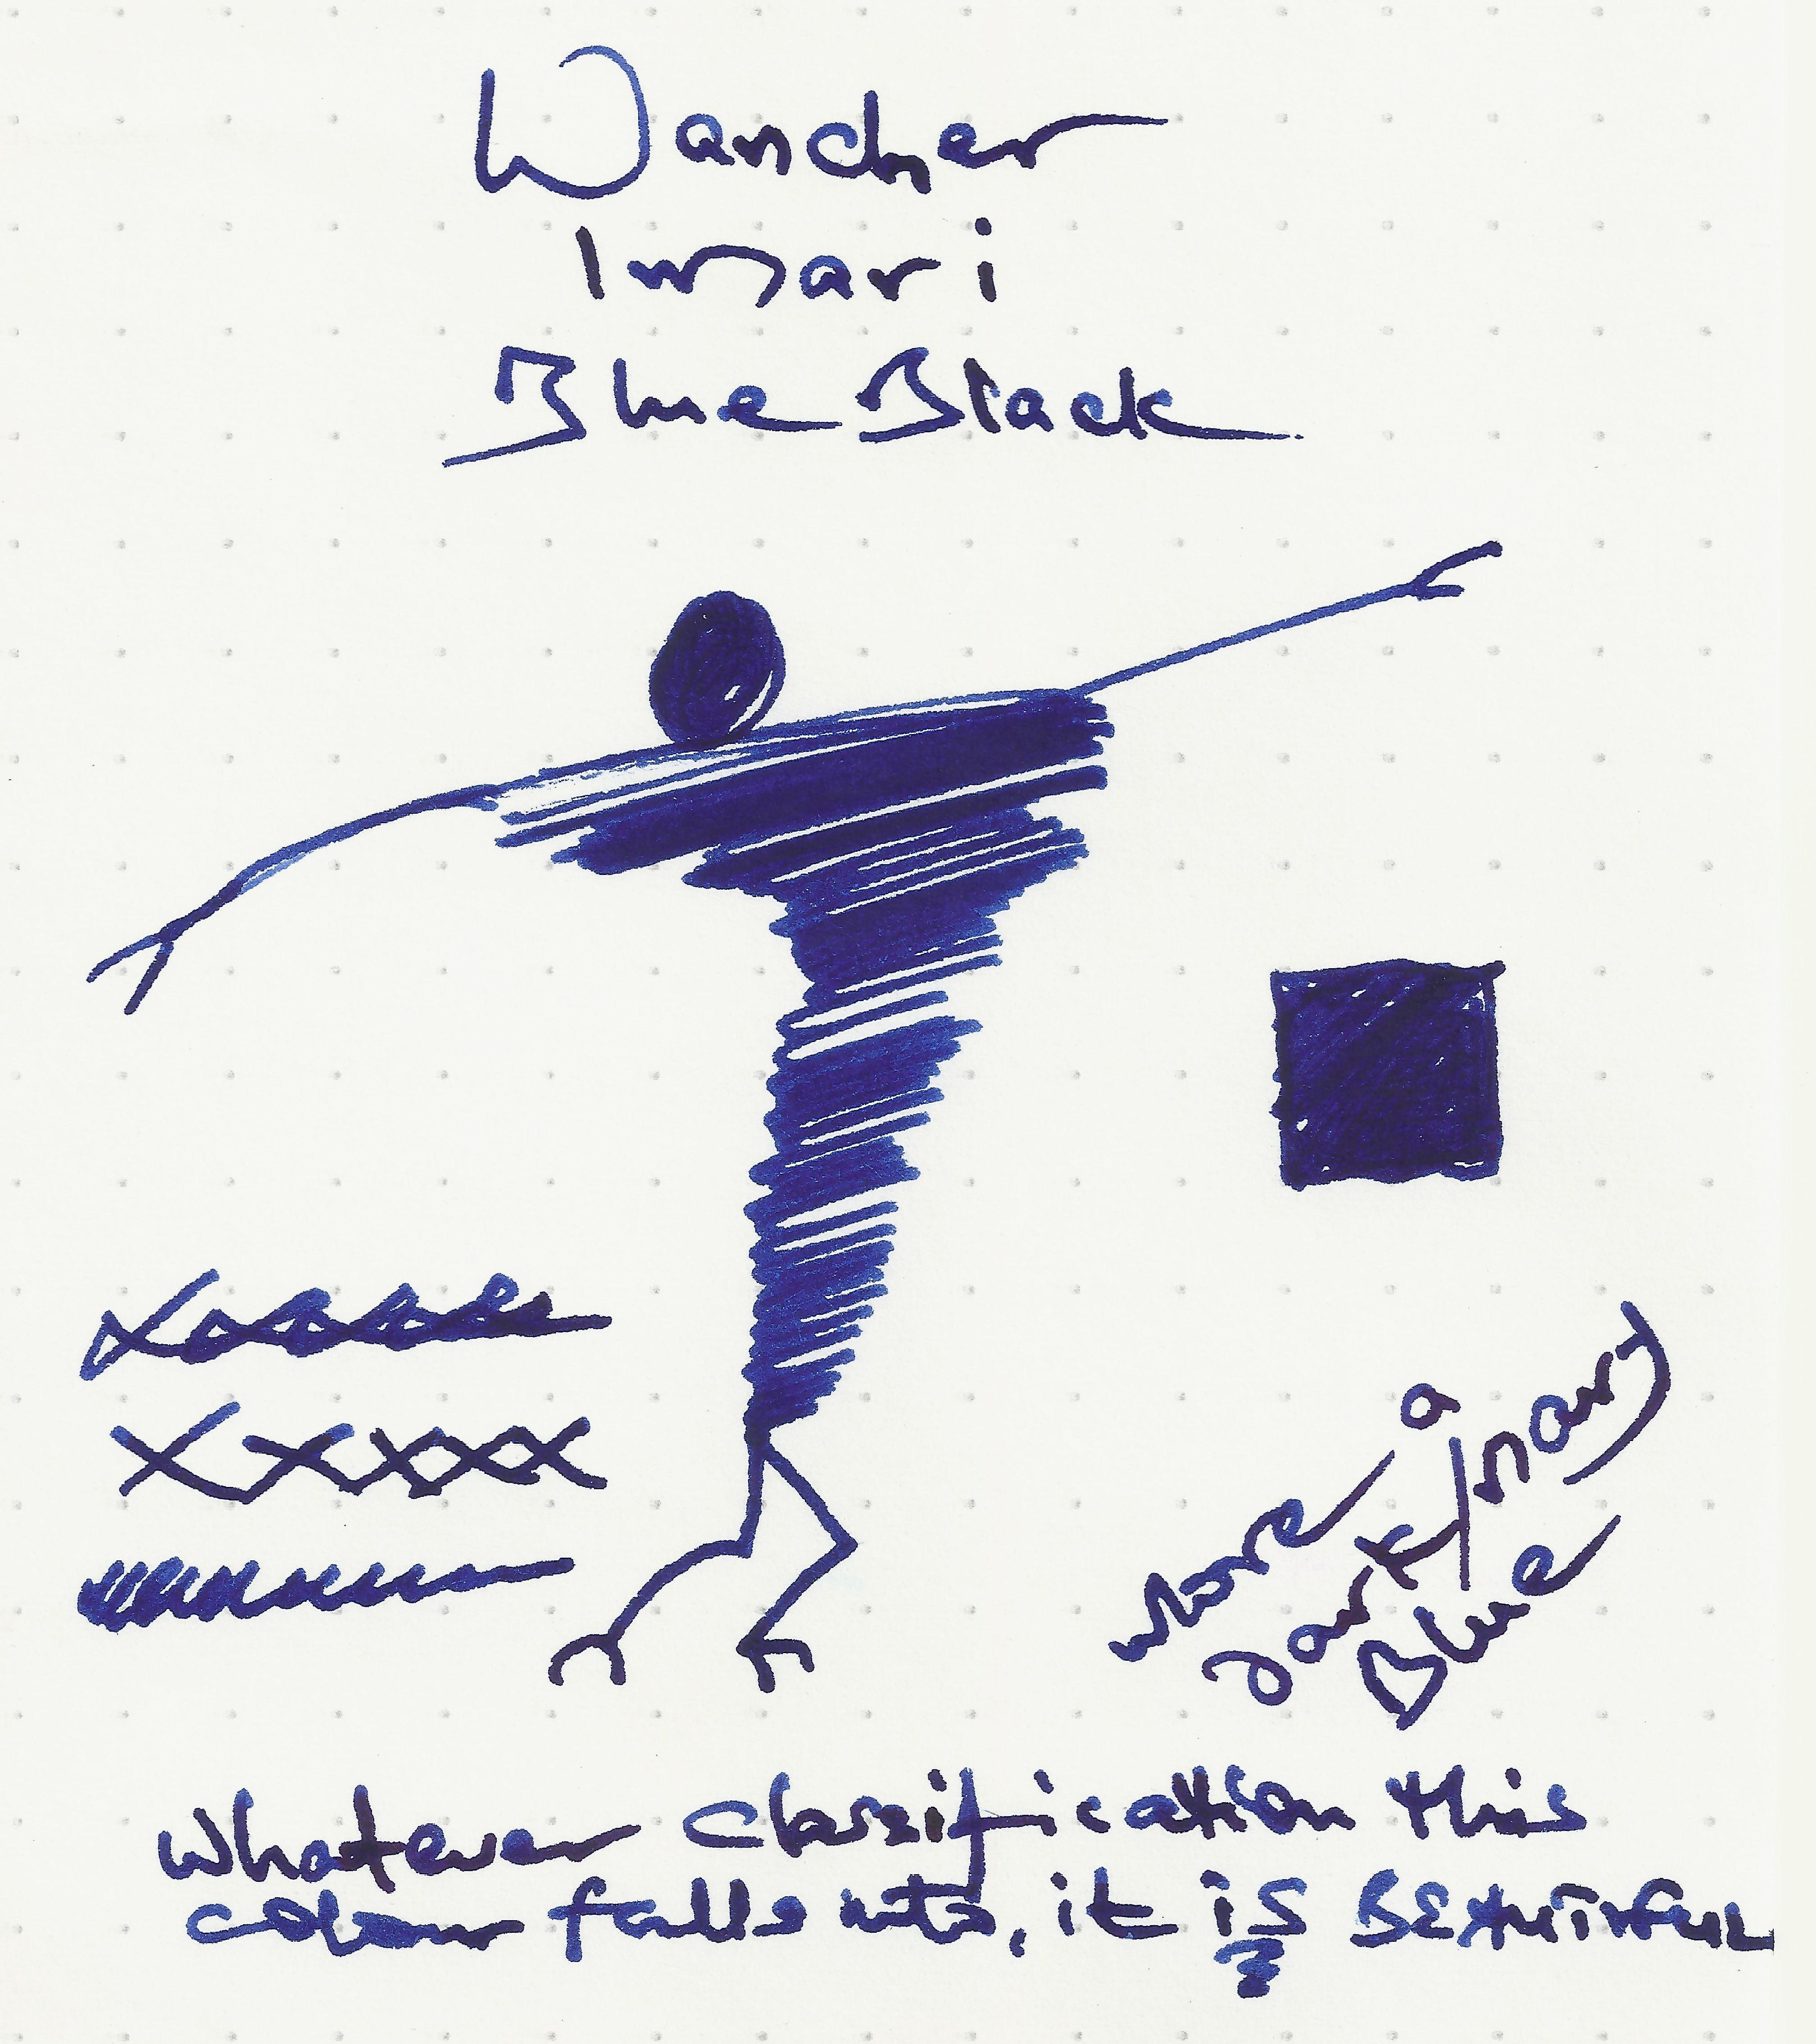 Wancher
Imari
Blue Black
more a
dark/navy
Blue
Whatever classification this
colour falls into, it is BEAUTIFUL